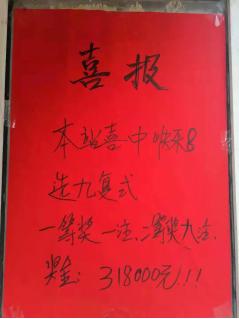 喜报
本站喜中快乐8
选九复式
一等奖一注、二等奖九注、
奖金：318000元!!!